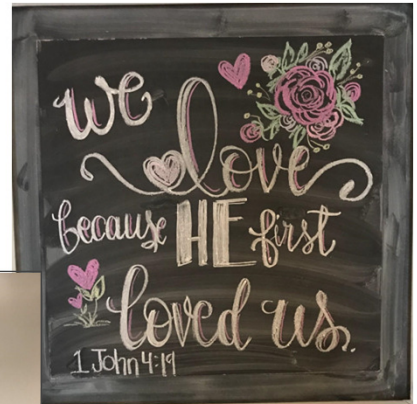 we
love
because HE first
loved us.
1 John 4:19